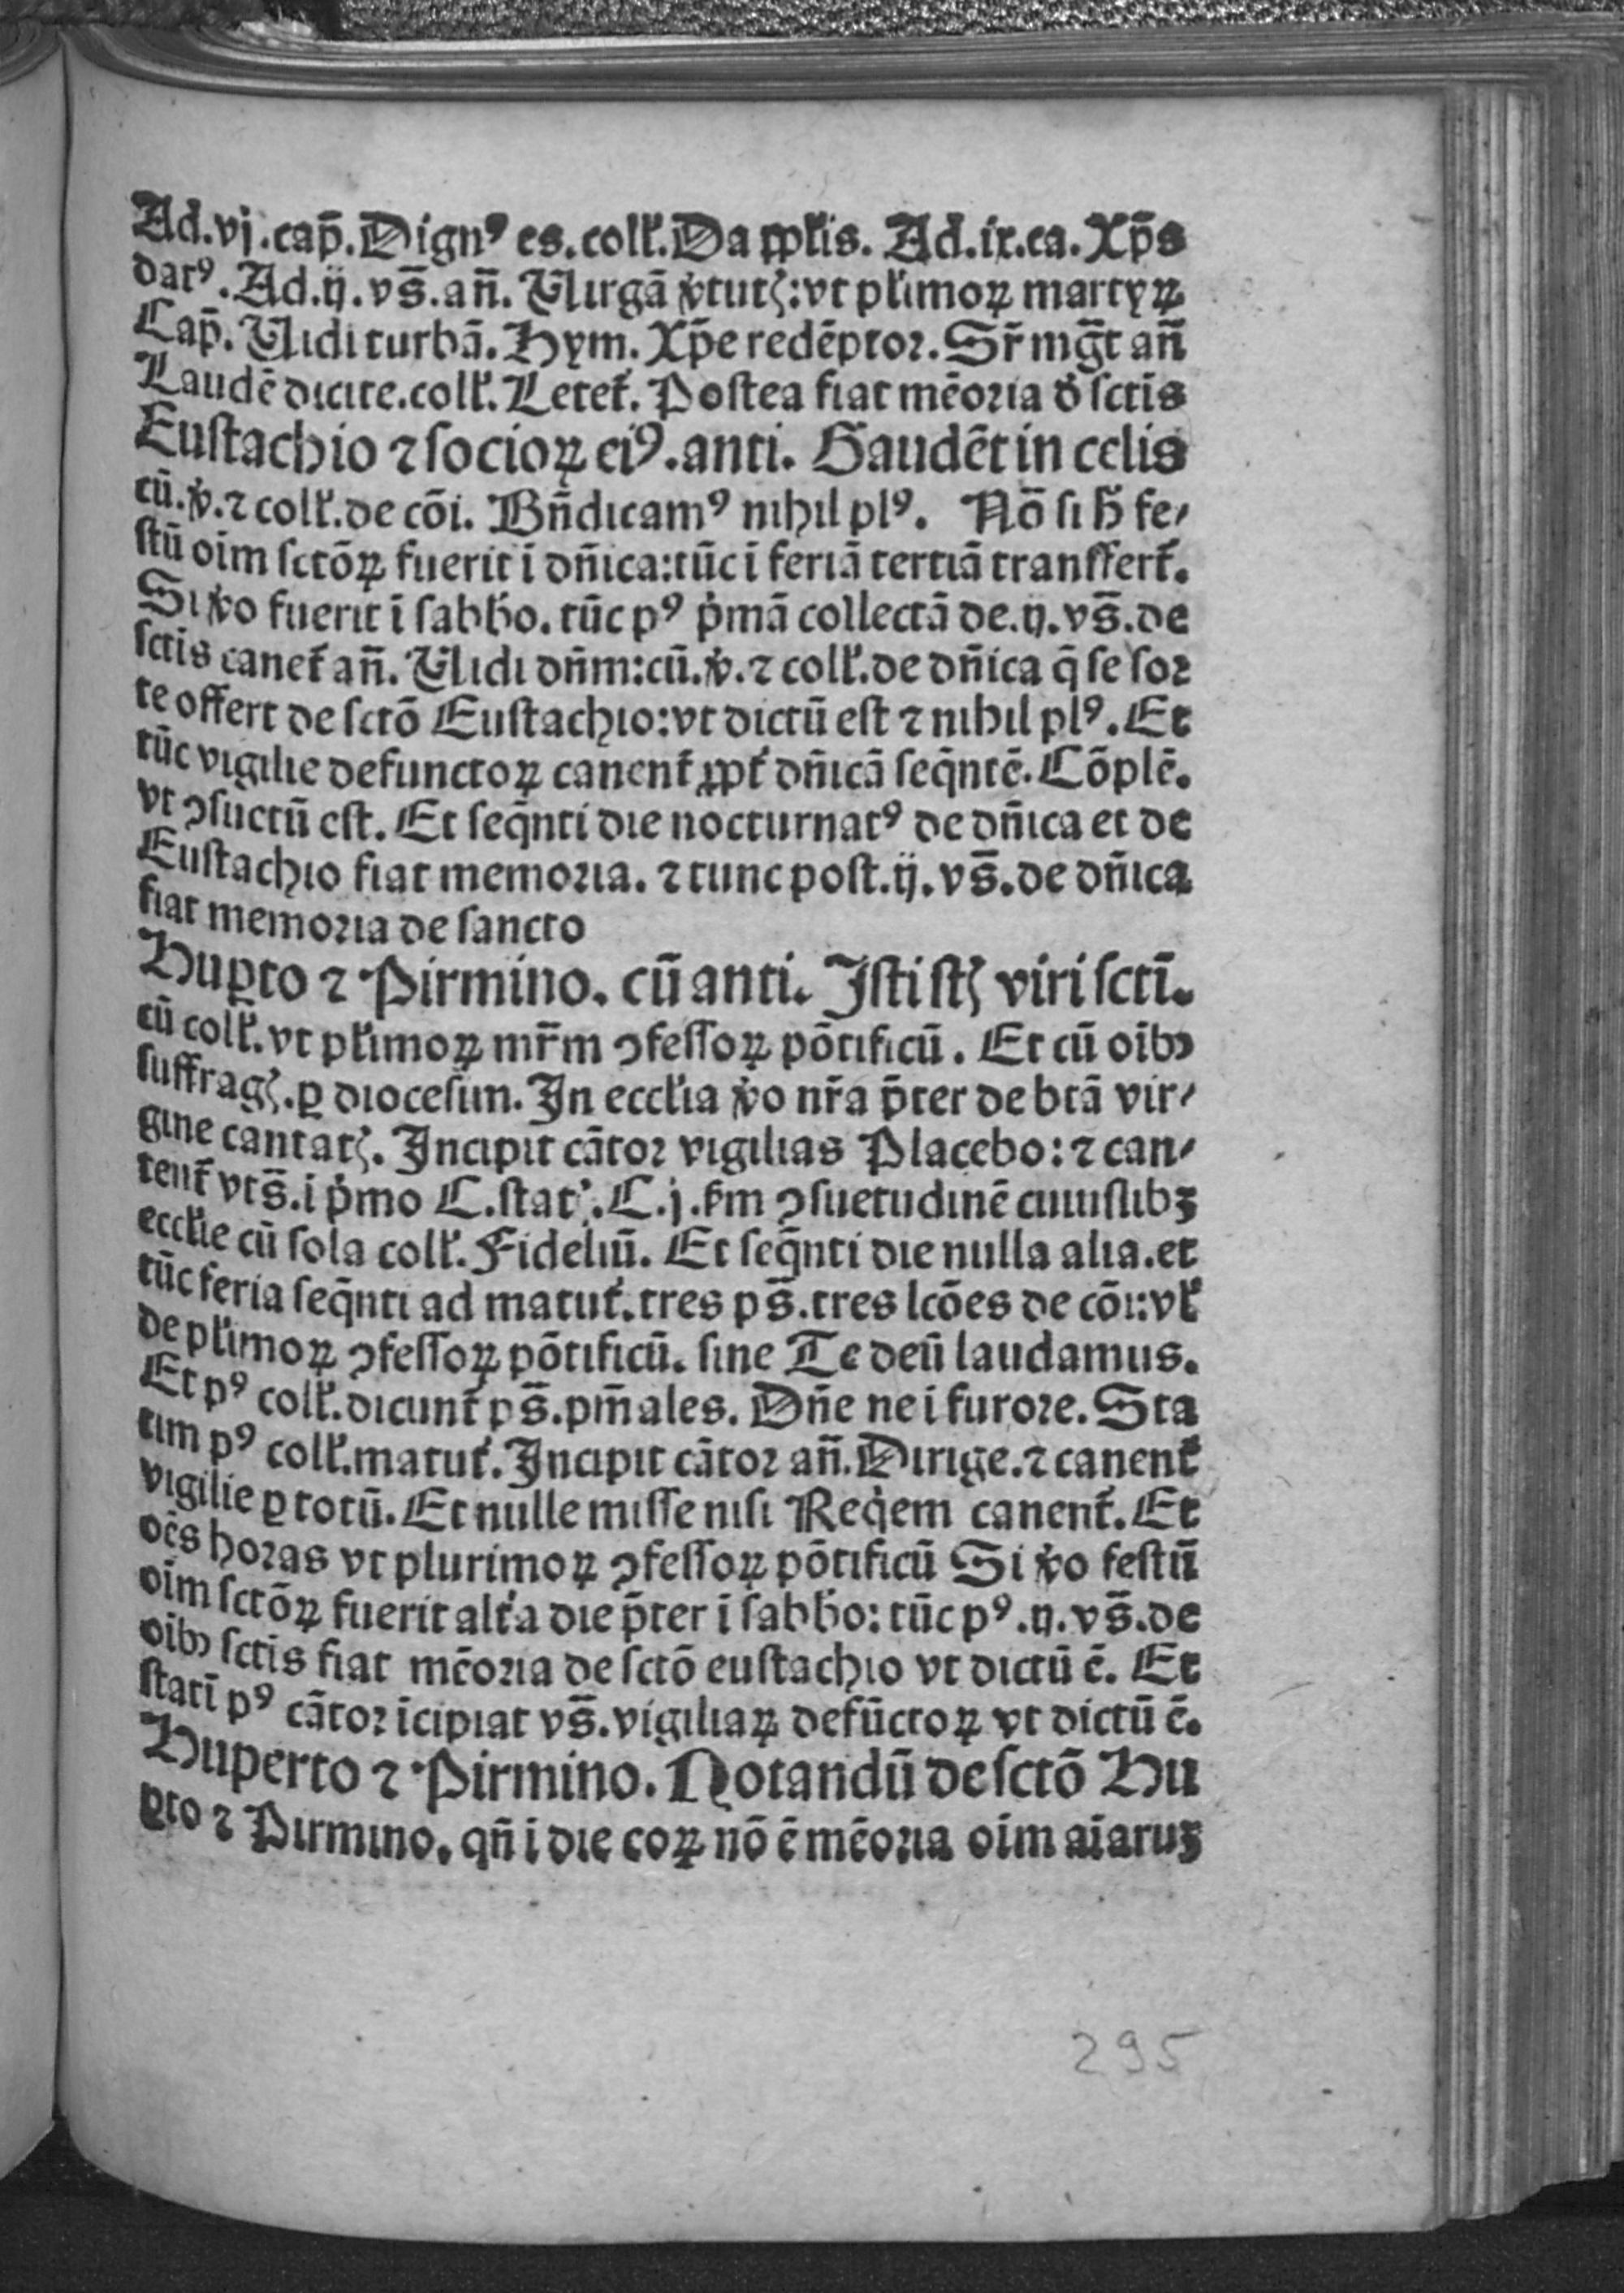 Ad.vj.cap̄.Dignꝰ es.coll'.Da p̄pl'is. Ad.ix.ca.Xp̄s
datꝰ.Ad.ij.vs̄.an̄. Uirgā v̓tutꝭ:vt pl'imoꝝ martyꝝ
Cap̄. Uidi turbā. Hym. Xp̄e redēptoꝛ. Sr̄ mḡt an̄
Laudē dicite.coll'. Letet᷑. Poſtea fiat mēoꝛia ð ſctīs
Euſtachio ⁊ ſocioꝝ eiꝰ.anti. Gaudēt in celis
cū.v̓.⁊ coll'.de cōi. Bn̄dicamꝰ nihil plꝰ. Nō ſi h̄ fe⸗
ſtū oīm ſctōꝝ fuerit ī dn̄ica:tūc ī feriā tertiā tranſfert᷑.
Si v̓o fuerit ī ſabb̄o. tūc pꝰ p̓mā collectā de.ij.vs̄.de
ſctīs canet᷑ an̄. Uidi dn̄m:cū.v̓.⁊ coll'.de dn̄ica q̄ ſe foꝛ
te offert de ſctō Euſtachio:vt dictū eſt ⁊ nihil plꝰ. Et
tūc vigilie defunctoꝝ canent᷑ ꝓpt᷑ dn̄icā ſeq̄ntē. Cōplē.
vt ꝯſuetū eſt. Et ſeq̄nti die nocturnatꝰ de dn̄ica et de
Euſtachio fiat memoꝛia. ⁊ tunc poſt.ij.vs̄.de dn̄ica
fiat memoꝛia de ſancto
Huꝑto ⁊ Pirmino. cū anti. Iſti ſtꝭ viri ſctī.
cū coll'.vt pl'imoꝝ mr̄m ꝯfeſſoꝝ pōtificū. Et cū oībꝰ
ſuffragꝭ.ꝑ dioceſim. In eccl'ia v̓o nr̄a p̄ter de btā vir⸗
gine cantatꝭ. Incipit cātoꝛ vigilias Placebo: ⁊ can⸗
tent᷑ vts̄.ī p̓mo C.ſtatꝰ.C.j.ẜm ꝯſuetudinē cuiuſlibꝫ
eccl'ie cū ſola coll'. Fideliū. Et ſeq̄nti die nulla alia.et
tūc feria ſeq̄nti ad matut᷑.tres ps̄.tres lcōes de cōi:vl'
de pl'imoꝝ ꝯfeſſoꝝ pōtificū. ſine Te deū laudamus.
Et pꝰ coll'.dicunt᷑ ps̄.pm̄ales. Dn̄e ne ī furoꝛe. Sta
tim pꝰ coll'.matut᷑. Incipit cātoꝛ an̄. Dirige.⁊ canent᷑
vigilie ꝑ totū. Et nulle miſſe niſi Reqi̇em canent᷑. Et
oēs hoꝛas vt plurimoꝝ ꝯfeſſoꝝ pōtificū Si v̓o feſtū
oīm ſctōꝝ fuerit alt᷑a die p̄ter ī ſabb̄o: tūc pꝰ.ij.vs̄.de
oībꝰ ſctīs fiat mēoꝛia de ſctō euſtachio vt dictū ē. Et
ſtatī pꝰ cātoꝛ īcipiat vs̄.vigiliaꝝ defūctoꝝ vt dictū ē.
Huperto ⁊ Pirmino. Notandū de ſctō Hu
ꝑto ⁊ Pirmino. qn̄ ī die eoꝝ nō ē mēoꝛia oīm aīaruꝫ
295